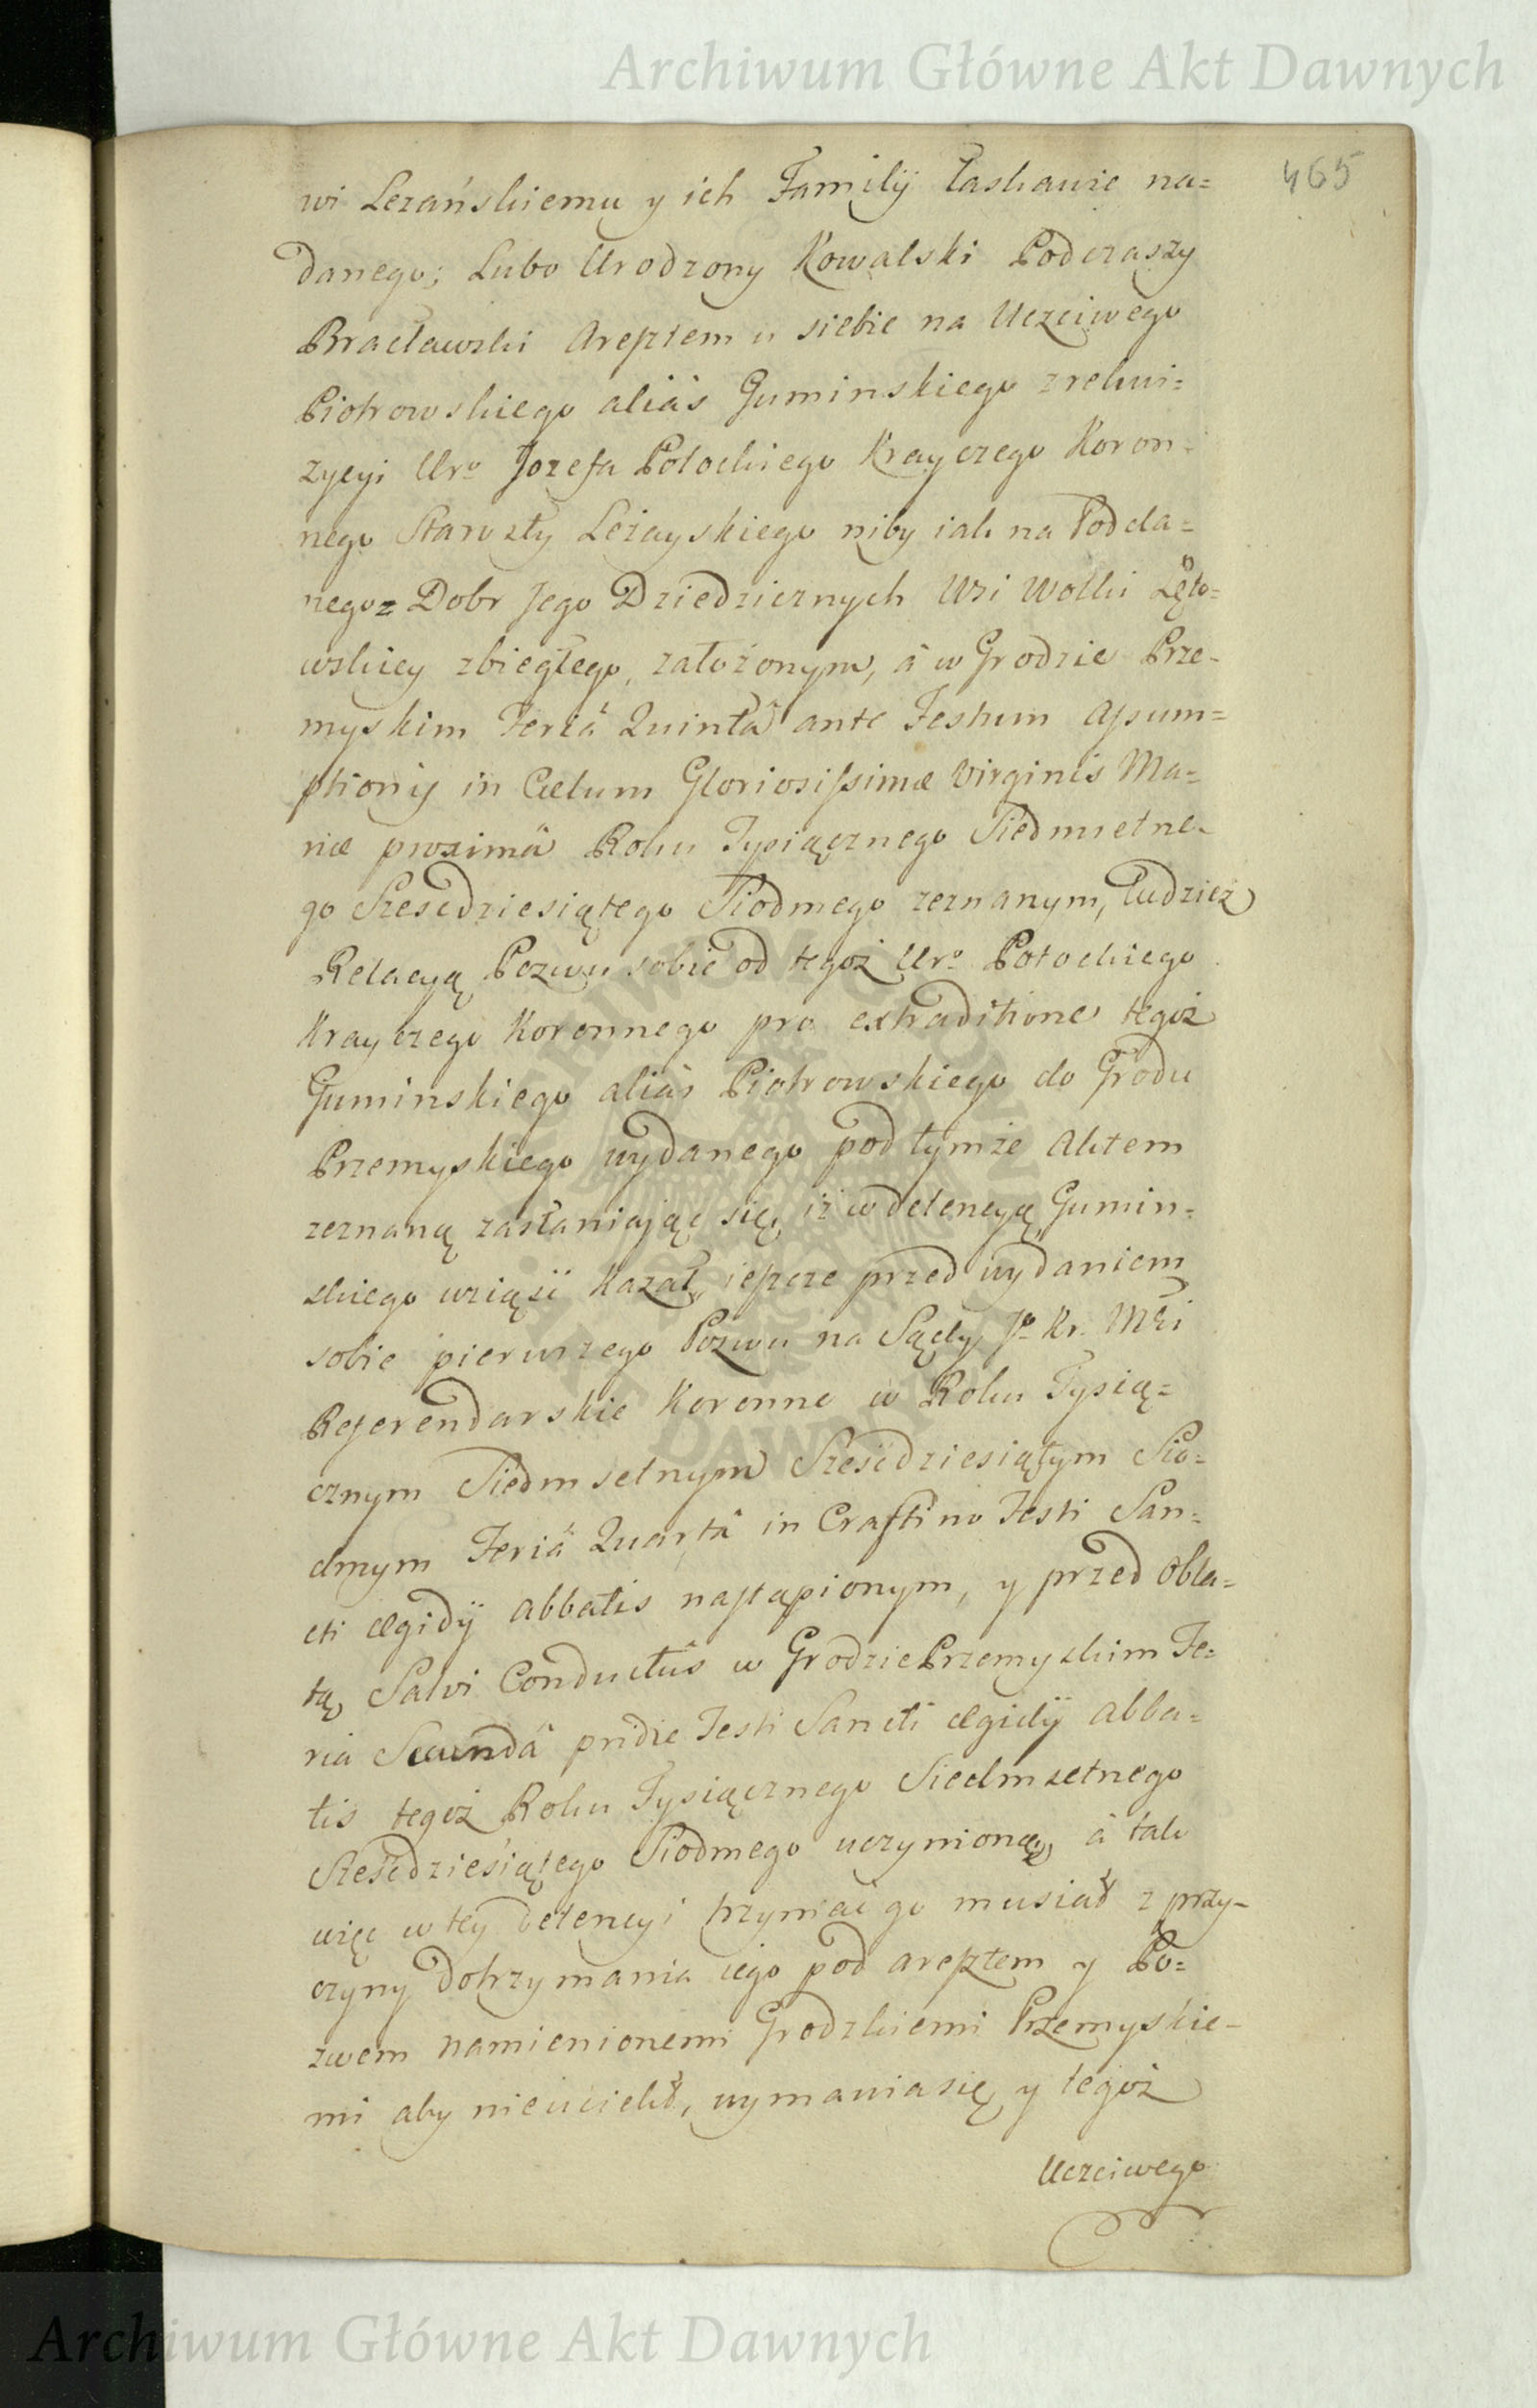 Archiwum Główne Akt Dawnych
465
wi Lezańskiemu y ich Familÿ łaskawie na=
danego; Lubo Urodzony Kowalski Podczaszy
Bracławski Aresztem u siebie na Uczciwego
Piotrowskiego aliàs Guminskiego z rekwi=
zycyi Uro Jozefa Potockiego Krayczego Koron=
nego Starosty Leżayskiego niby iak na Podda=
nego z Dobr Jego Dziedzicznych Wsi Wolki Łęto=
wskiey zbiegłego, założonym, à w Grodzie Prze=
myskim Feriâ Quintâ ante Festum Assum=
ptionis in Cælum Gloriosissimæ Virginis Ma=
riæ proximâ Roku Tysiącznego Siedmsetne=
go Szescdziesiątego Siodmego zeznanym, tudziez
Relacyą Pozwu sobie od tegoż Uro Potockiego
Krayczego Koronnego pro extraditione tegoż
Guminskiego aliàs Piotrowskiego do Grodu
Przemyskiego wydanego pod tymże Aktem
zeznaną zasłaniając się, iż w detencyą Gumin=
skiego wziąść kazał, ieszcze przed wydaniem
sobie pierwszego Pozwu na Sądy Jo Kr. Mci
Referendarskie Koronne w Roku Tysią=
cznym Siedmsetnym Sześćdziesiątym Sio=
dmym Feriâ Quartâ in Crastino Festi San=
cti Ægidÿ Abbatis nastąpionym, y przed Obla=
tą Salvi Conductûs w Grodzie Przemyskim Fe=
ria Secundâ pridie Festi Sancti Ægidÿ Abba=
tis tegoż Roku Tysiącznego Siedmsetnego
Sześćdziesiątego Siodmego uczynioną, à tak
więc w tey detencyi trzymać go musiał z przy=
czyny dotrzymania iego pod aresztem y Po=
zwem namienionemi Grodzkiemi Przemyskie=
mi aby nieuciekł, wymawia się, y tegoż
Uczciwego
ARCHIWUM GŁÓWNE AKT DAWNYCH
Archiwum Główne Akt Dawnych